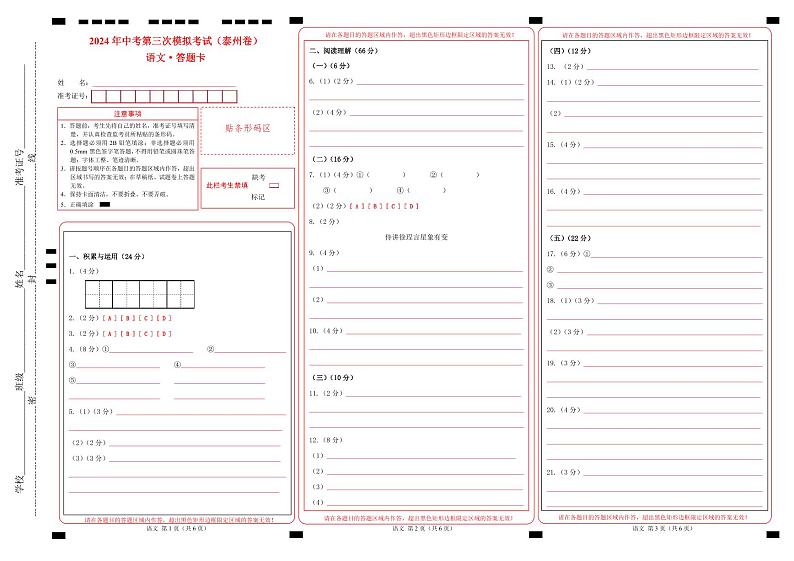 准考证号
姓名
班级
学校
线
封
密
2024 年中考第三次模拟考试（泰州卷）
语文·答题卡
姓 名：
准考证号：
注意事项
1．答题前，考生先将自己的姓名，准考证号填写清
楚，并认真检查监考员所粘贴的条形码。
2．选择题必须用 2B 铅笔填涂；非选择题必须用
0.5mm 黑色签字笔答题，不得用铅笔或圆珠笔答
题；字体工整、笔迹清晰。
3．请按题号顺序在各题目的答题区域内作答，超出
区域书写的答案无效；在草稿纸、试题卷上答题
无效。
4．保持卡面清洁，不要折叠、不要弄破。
5．正确填涂
贴条形码区
此栏考生禁填
缺考
标记
一、积累与运用（24 分）
1．（4 分）
2．（2 分）[ A ] [ B ] [ C ] [ D ]
3．（2 分）[ A ] [ B ] [ C ] [ D ]
4．（8 分）① ②
③ ④
⑤
5．（1）（3 分）
（2）（2 分）
（3）（3 分）
请在各题目的答题区域内作答，超出黑色矩形边框限定区域的答案无效！
语文 第 1 页（共 6 页）
请在各题目的答题区域内作答，超出黑色矩形边框限定区域的答案无效！
二、阅读理解（66 分）
（一）（6 分）
6．（1）（2 分）
（2）（4 分）
（二）（16 分）
7．（1）（4 分）①（ ） ②（ ）
③（ ） ④（ ）
（2）（2 分）[ A ] [ B ] [ C ] [ D ]
8．（2 分）
侍讲徐珵言星象有变
9．（4 分）
（1）
（2）
10．（4 分）
（三）（10 分）
11．（2 分）
12．（8 分）
（1）
（2）
（3）
（4）
请在各题目的答题区域内作答，超出黑色矩形边框限定区域的答案无效！
语文 第 2 页（共 6 页）
请在各题目的答题区域内作答，超出黑色矩形边框限定区域的答案无效！
（四）（12 分）
13．（2 分）
14．（2 分）（1）
（2）
15．（4 分）
16．（4 分）
（五）（22 分）
17．（6 分）①
②
③
18．（1）（3 分）
（2）（3 分）
19．（3 分）
20．（4 分）
21．（3 分）
请在各题目的答题区域内作答，超出黑色矩形边框限定区域的答案无效！
语文 第 3 页（共 6 页）